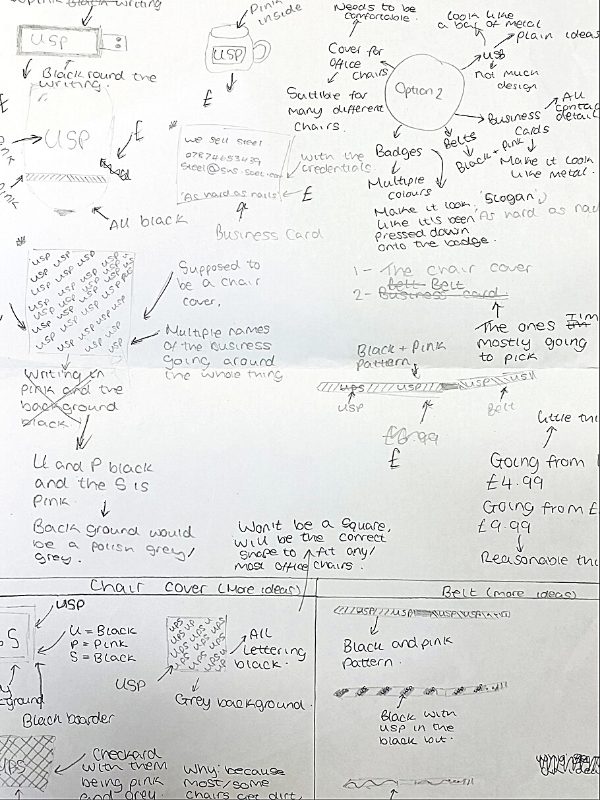 writing
USP
Black round the
writing.
Pink
inside
USP
£
£
USP
£
All black
we sell steel
'As hard as nails'
with the
credentials
£
Business Card
Needs to be
comfortable.
Cover for
office
chairs
Suitible for
many different
chairs.
Option 2
look like
a bar of metal
plain ideas
USB
not much
design
Business
Cards
All
contact
details
Make it look
like metal.
Belts
Black + pink
Badges
Multiple
colours
Make it look
like it's been
pressed down
onto the badge.
'Slogan'
As hard as
1 - The chair cover
Belt Belt
2 - Business card
The ones Tim
mostly going
to pick
USP USP USP USP
Supposed to
be a chair
cover.
Multiple names
of the Business
going around
the whole thing
Writing in
pink and the
background
black
U and P black
and the S is
Pink.
Back ground would
be a polish grey/
grey.
Black + Pink
Pattern
UPS USP USP USP
USP
Belt
£
little
Going from
£4.99
Going from £
£9.99
Reasonable
Won't be a Square,
will be the correct
shape to fit any/
most office chairs.
Chair cover (More ideas)
S
USP
U = Black
P = Pink
S = Black
Black boarder
UPS UPS UPS
USP
All
Lettering
black.
Grey background.
UPS
Checkard
with them
being pink
and grey
Why: because
most/some
chairs get dirt,
Belt (more ideas)
USP USP USP USP
Black and pink
Pattern.
Black with
USP in the
black but.